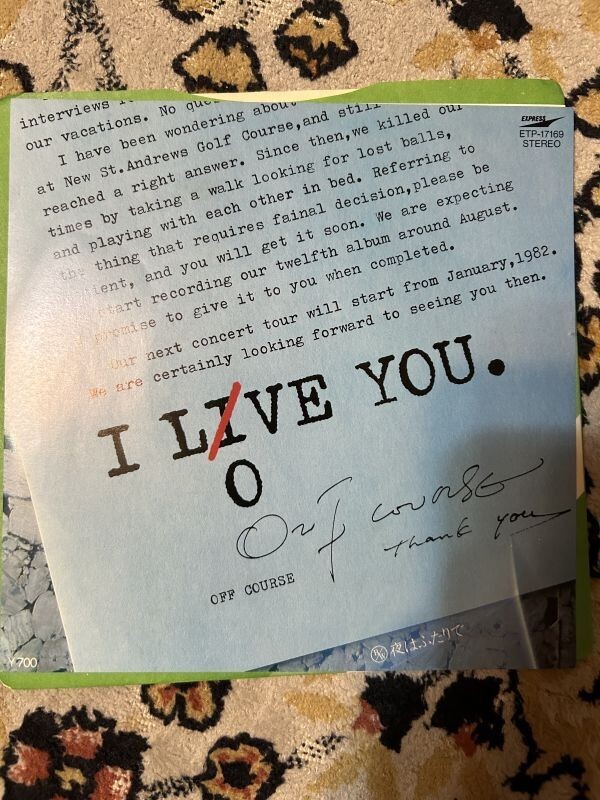 interviews
our vacations. No
I have been wondering about
at New St.Andrews Golf Course,and still
reached a right answer. Since then,we killed our
times by taking a walk looking for lost balls,
and playing with each other in bed. Referring to
thing that requires fainal decision,please be
ient, and you will get it soon. We are expecting
start recording our twelfth album around August.
promise to give it to you when completed.
Our next concert tour will start from January,1982.
We are certainly looking forward to seeing you then.
I LIVE YOU.
O
Off course
thank you
OFF COURSE
EXPRESS
ETP-17169
STEREO
¥700
B/W 夜はふたりで